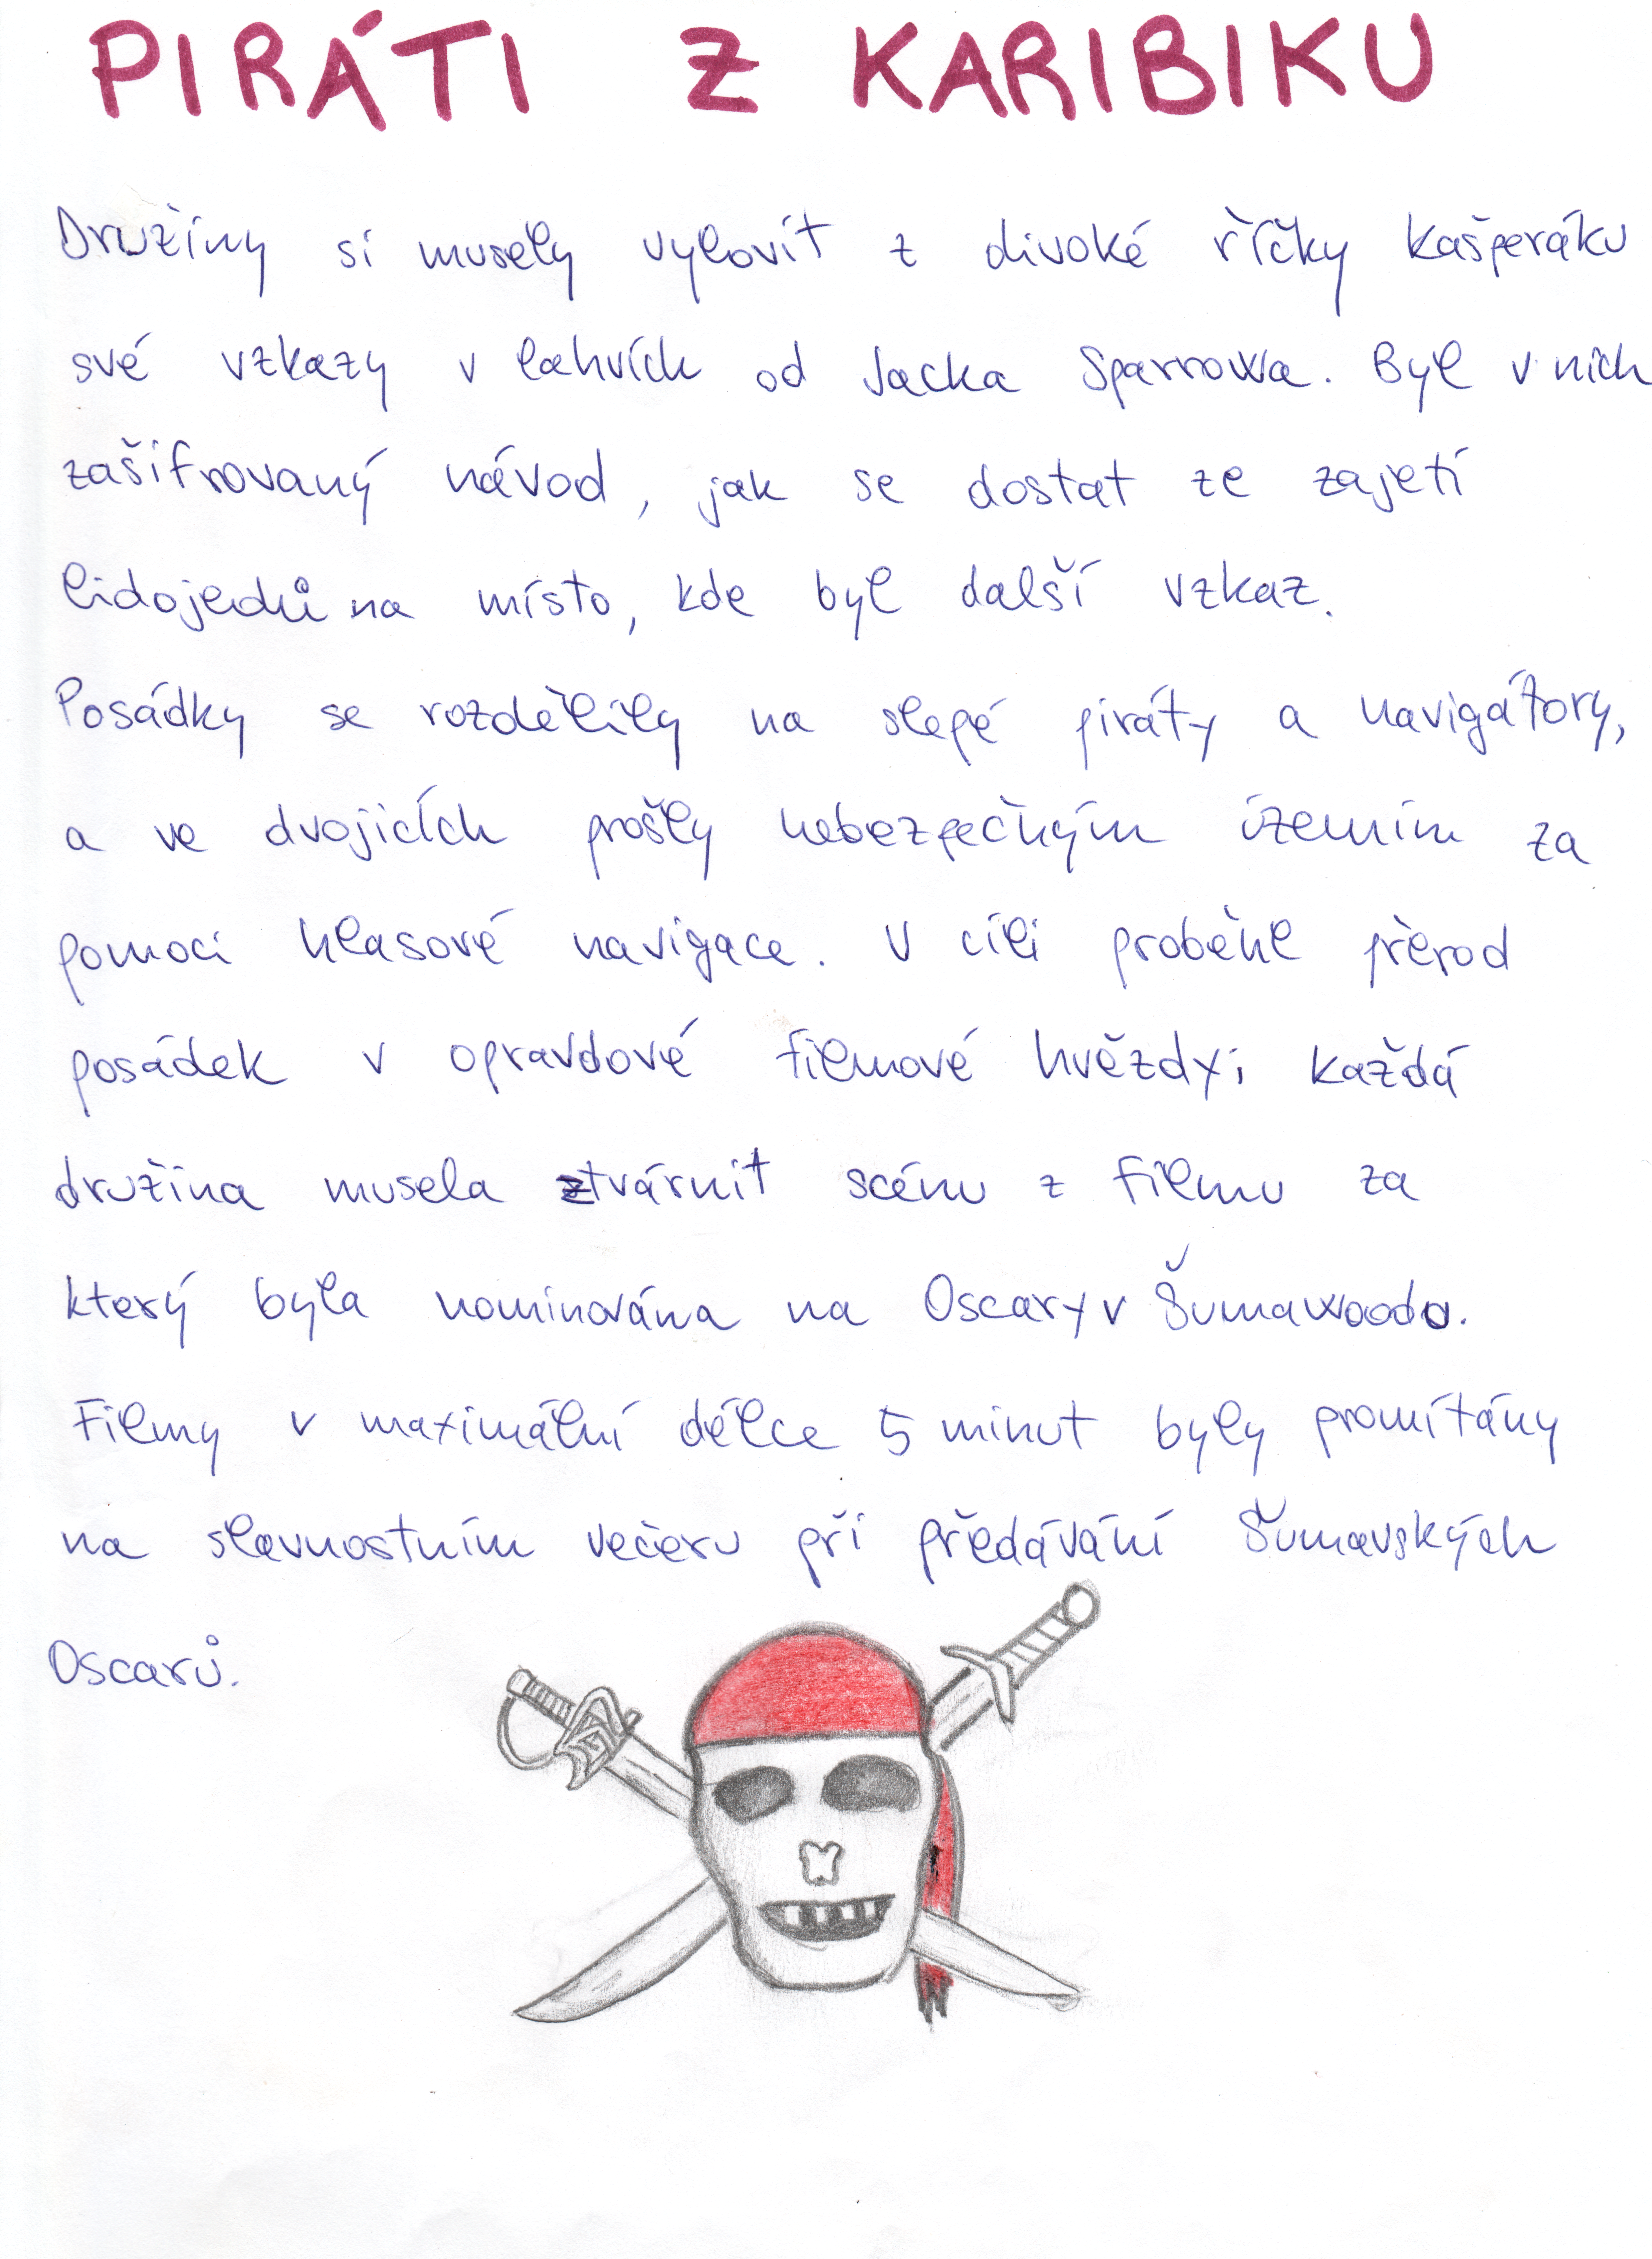 PIRÁTI Z KARIBIKU
Družiny si musely vylovit z divoké říčky Kašperáku
své vzkazy v lahvích od Jacka Sparrowa. Byl v nich
zašifrovaný návod, jak se dostat ze zajetí
lidojedů na místo, kde byl další vzkaz.
Posádky se rozdělily na slepé piráty a navigátory,
a ve dvojicích prošly nebezpečným územím za
pomoci hlasové navigace. V cíli proběhl přerod
posádek v opravdové filmové hvězdy; každá
družina musela ztvárnit scénu z filmu za
který byla nominována na Oscary v Šumawoodu.
Filmy v maximální délce 5 minut byly promítány
na slavnostním večeru při předávání Šumavských
Oscarů.